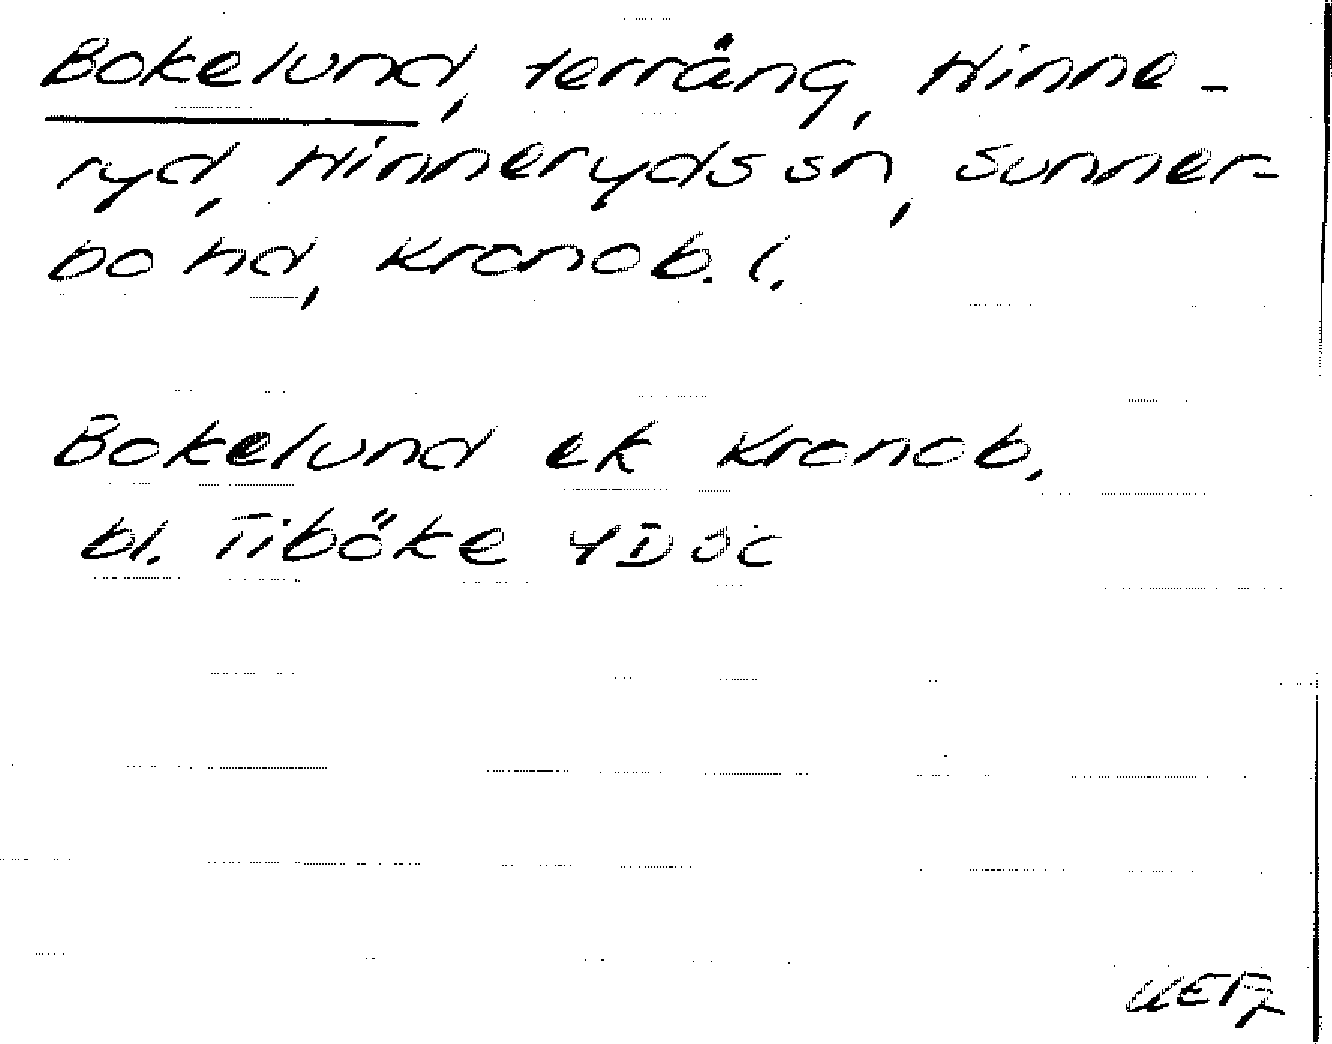 Bokelund, terräng, Hinne-
ryd, Hinneryds sn, Sunner-
bo hd, Kronob. l.
Bokelund ek Kronob.
bl. Tiböke 4D